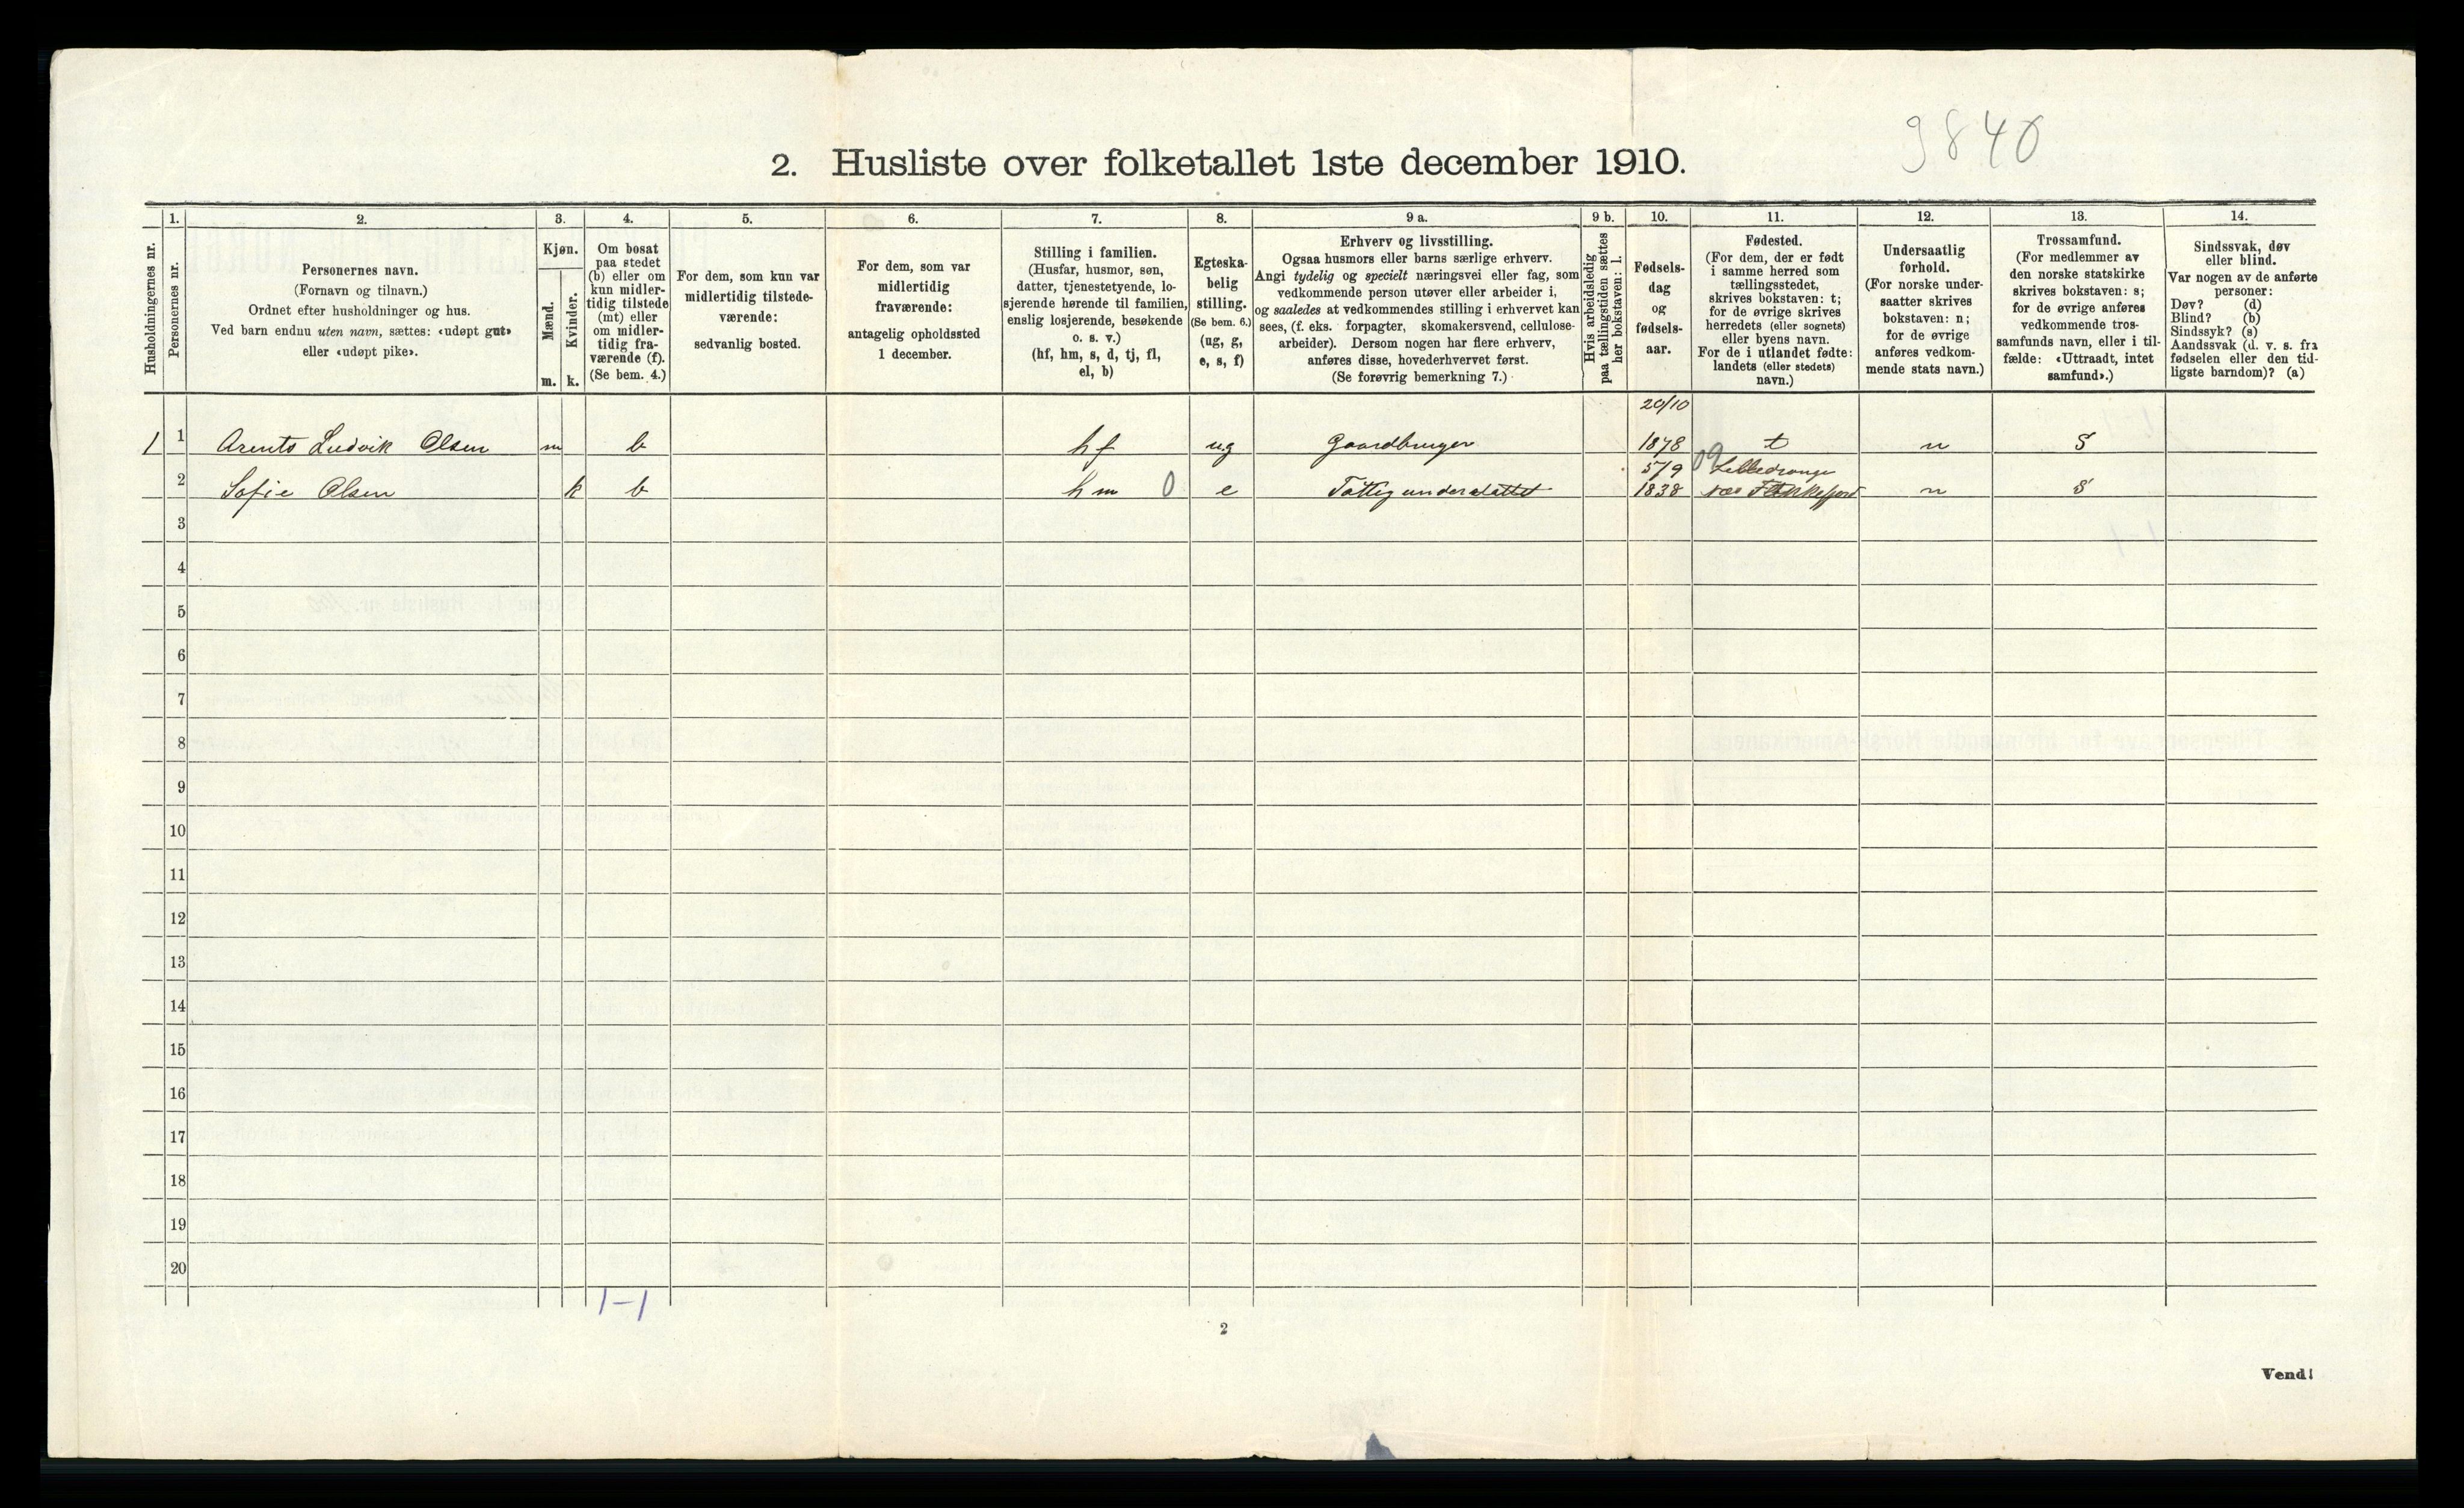 9840
2. Husliste over folketallet 1ste december 1910.
Husholdningernes nr.
1.
Personernes nr.
2.
Personernes navn.
(Fornavn og tilnavn.)
Ordnet efter husholdninger og hus.
Ved barn endnu uten navn, sættes: «udøpt gut»
eller «udøpt pike».
3.
Kjøn.
Mænd.
Kvinder.
m. k.
4.
Om bosat
paa stedet
(b) eller om
kun midler-
tidig tilstede
(mt) eller
om midler-
tidig fra-
værende (f).
(Se bem. 4.)
5.
For dem, som kun var
midlertidig tilstede-
værende:
sedvanlig bosted.
6.
For dem, som var
midlertidig
fraværende:
antagelig opholdssted
1 december.
7.
Stilling i familien.
(Husfar, husmor, søn,
datter, tjenestetyende, lo-
sjerende hørende til familien,
enslig losjerende, besøkende
o. s. v.)
(hf, hm, s, d, tj, fl,
el, b)
8.
Egteska-
belig
stilling.
(Se bem. 6.)
(ug, g,
e, s, f)
9 a.
Erhverv og livsstilling.
Ogsaa husmors eller barns særlige erhverv.
Angi tydelig og specielt næringsvei eller fag, som
vedkommende person utøver eller arbeider i,
og saaledes at vedkommendes stilling i erhvervet kan
sees, (f. eks. forpagter, skomakersvend, cellulose-
arbeider). Dersom nogen har flere erhverv,
anføres disse, hovederhvervet først.
(Se forøvrig bemerkning 7.)
9 b.
Hvis arbeidsledig
paa tællingstiden sættes
her bokstaven: l.
10.
Fødsels-
dag
og
fødsels-
aar.
11.
Fødested.
(For dem, der er født
i samme herred som
tællingsstedet,
skrives bokstaven: t;
for de øvrige skrives
herredets (eller sognets)
eller byens navn.
For de i utlandet fødte:
landets (eller stedets)
navn.)
12.
Undersaatlig
forhold.
(For norske under-
saatter skrives
bokstaven: n;
for de øvrige
anføres vedkom-
mende stats navn.)
13.
Trossamfund.
(For medlemmer av
den norske statskirke
skrives bokstaven: s;
for de øvrige anføres
vedkommende tros-
samfunds navn, eller i til-
fælde: «Uttraadt, intet
samfund».)
14.
Sindssvak, døv
eller blind.
Var nogen av de anførte
personer:
Døv? (d)
Blind? (b)
Sindssyk? (s)
Aandssvak (d. v. s. fra
fødselen eller den tid-
ligste barndom)? (a)
20/10
1 1 Arents Ludvik Olsen m b hf ug Gaardbruger 1878 t n S
5/9 09
2 Sofie Olsen k b hm 0 e Fattigunderstøttet 1838 n S
3
4
5
6
7
8
9
10
11
12
13
14
15
16
17
18
19
20
1-1
2
Vend!